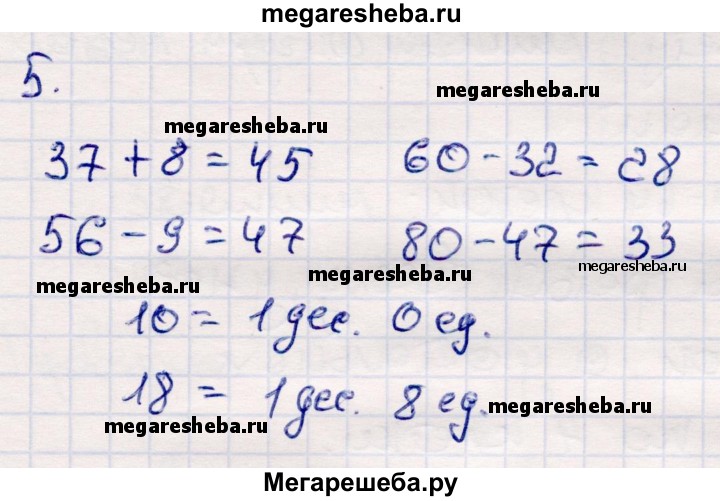 megaresheba.ru
5.
megaresheba.ru
megaresheba.ru
37 + 8 = 45 60 - 32 = 28
56 - 9 = 47 80 - 47 = 33
megaresheba.ru
megaresheba.ru
megaresheba.ru
10 = 1 дес. 0 ед.
18 = 1 дес. 8 ед.
megaresheba.ru
megaresheba.ru
Мегарешеба.ру